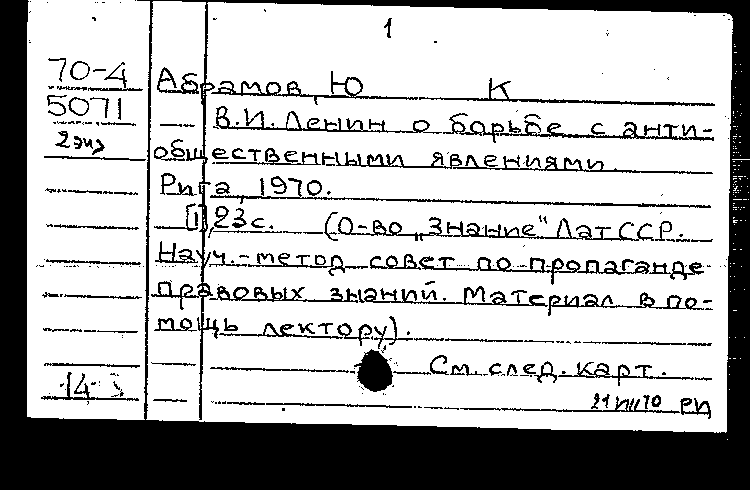 1
70-4 Абрамов, Ю К
5071 В.И. Ленин о борьбе с анти-
2 экз общественными явлениями.
Рига, 1970.
[1], 23 с. (О-во „Знание" ЛатССР.
Науч.-метод совет по пропаганде
правовых знаний. Материал в по-
мощь лектору).
См. след. карт.
14